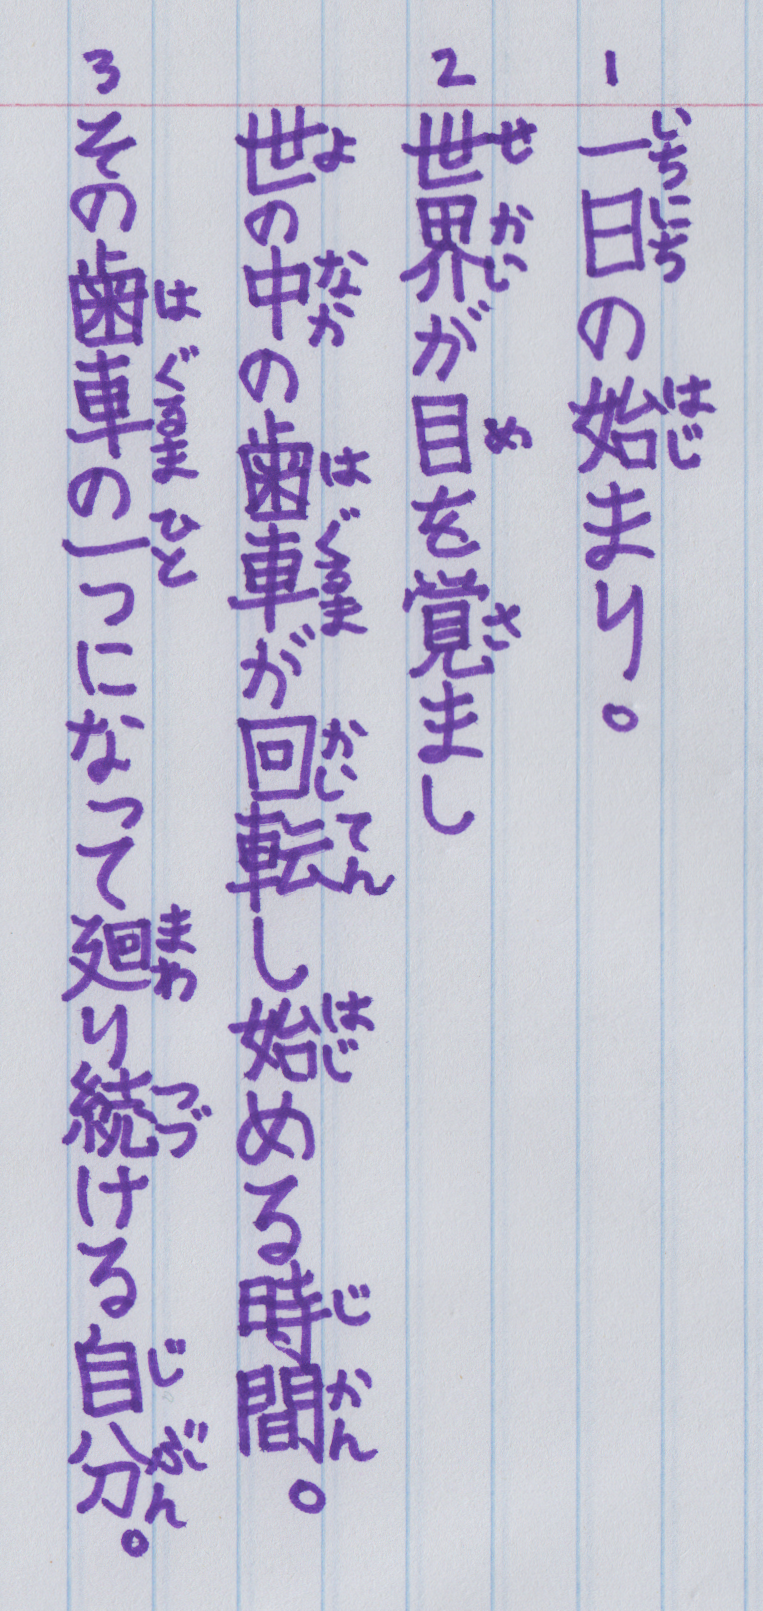 1 一日の始まり。
いちにち はじ
2 世界が目を覚まし
せかい め さ
世の中の歯車が回転し始める時間。
よ なか はぐるま かいてん はじ じかん
3 その歯車の一つになって廻り続ける自分。
はぐるま ひと まわ つづ じぶん